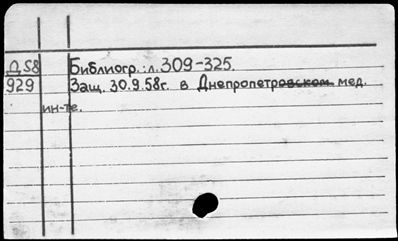 Д58 Библиогр.: л. 309-325.
929 Защ. 30.9.58г. в Днепропетровском мед.
ин-те.